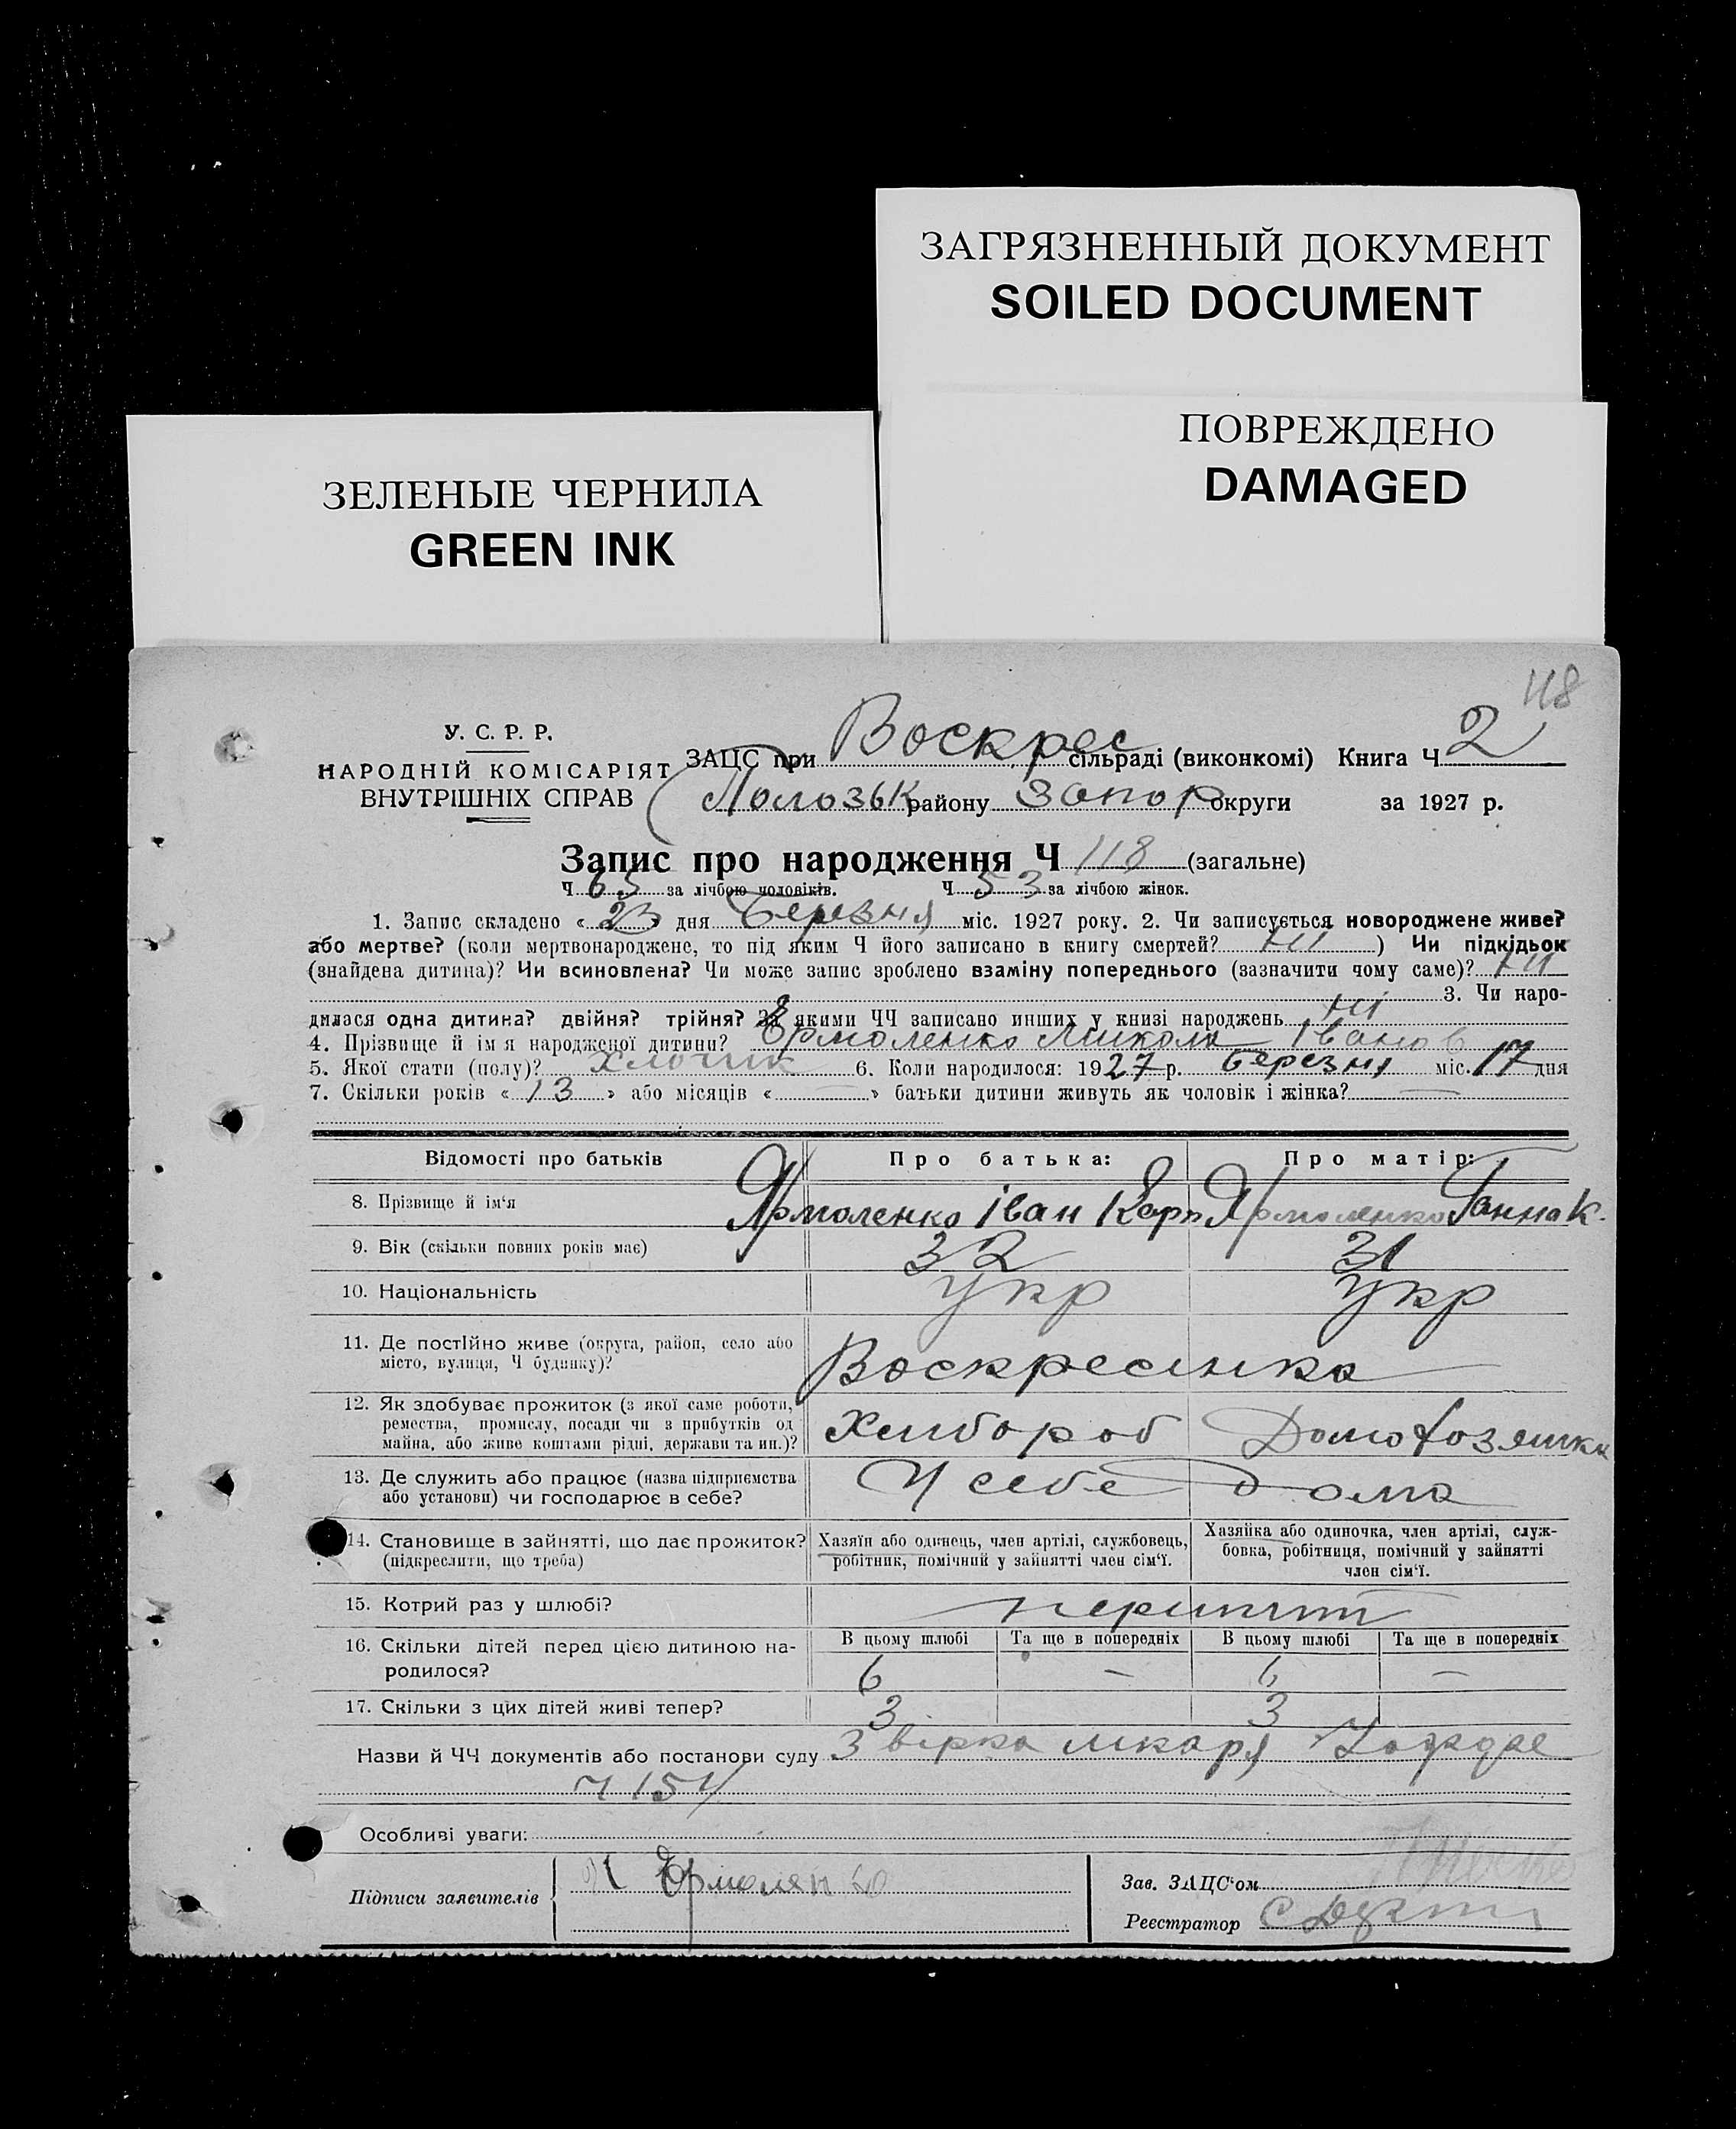 ЗАГРЯЗНЕННЫЙ ДОКУМЕНТ
SOILED DOCUMENT
ПОВРЕЖДЕНО
DAMAGED
ЗЕЛЕНЫЕ ЧЕРНИЛА
GREEN INK
118
У. С. Р. Р.
НАРОДНІЙ КОМІСАРІЯТ
ВНУТРІШНІХ СПРАВ
ЗАЦС при Воскрес сільраді (виконкомі) Книга Ч 2
Пологзьк району Запор округи за 1927 р.
Запис про народження Ч 118 (загальне)
Ч 65 за лічбою чоловіків. Ч 53 за лічбою жінок.
1. Запис складено « 23 » дня Березня міс. 1927 року. 2. Чи записується новороджене живе?
або мертве? (коли мертвонароджене, то під яким Ч його записано в книгу смертей? ні ) Чи підкідьок
(знайдена дитина)? Чи всиновлена? Чи може запис зроблено взаміну попереднього (зазначити чому саме)? ні
3. Чи наро-
дилася одна дитина? двійня? трійня? За якими ЧЧ записано инших у книзі народжень ні
4. Прізвище й ім'я народженої дитини? Єрмоленко Микола Іванов
5. Якої стати (полу)? хлопчик 6. Коли народилося: 1927 р. березня міс. 17 дня
7. Скільки років « 13 » або місяців « — » батьки дитини живуть як чоловік і жінка? —
Відомості про батьків Про батька: Про матір:
8. Прізвище й ім'я Ярмоленко Іван Карп Ярмоленко Ганна К.
9. Вік (скільки повних років має) 32 31
10. Національність Укр Укр
11. Де постійно живе (округа, район, село або
місто, вулиця, Ч будинку)? Воскресинка
12. Як здобуває прожиток (з якої саме роботи,
ремества, промислу, посади чи з прибутків од
майна, або живе коштами рідні, держави та ин.)? Хлибороб Домохозяйка
13. Де служить або працює (назва підприємства
або установи) чи господарює в себе? У себе дома
14. Становище в зайнятті, що дає прожиток?
(підкреслити, що треба)
Хазяїн або одинець, член артілі, службовець,
робітник, помічний у зайнятті член сім'ї.
Хазяйка або одиночка, член артілі, служ-
бовка, робітниця, помічний у зайнятті
член сім'ї.
15. Котрий раз у шлюбі?
16. Скільки дітей перед цією дитиною на-
родилося?
В цьому шлюбі Та ще в попередніх В цьому шлюбі Та ще в попередніх
6 — 6 —
17. Скільки з цих дітей живі тепер? 3 3
Назви й ЧЧ документів або постанови суду Звірка лікаря
Ч 154
Особливі уваги:
Підписи заявителів Єрмоленко
Зав. ЗАЦС'ом
Реєстратор